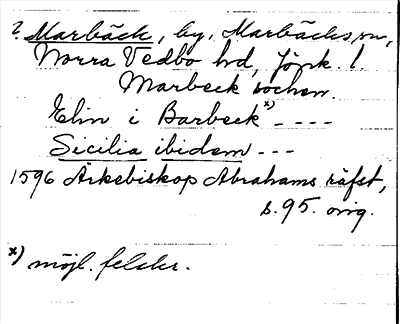 ? Marbäck, by, Marbäcks sn,
Norra Vedbo hd, Jönk. l.
Marbeck sochen.
Elin i Barbeck x) ----
Sicilia ibidem ---
1596 Ärkebiskop Abrahams räfst,
s. 95. orig.
x) möjl. felskr.